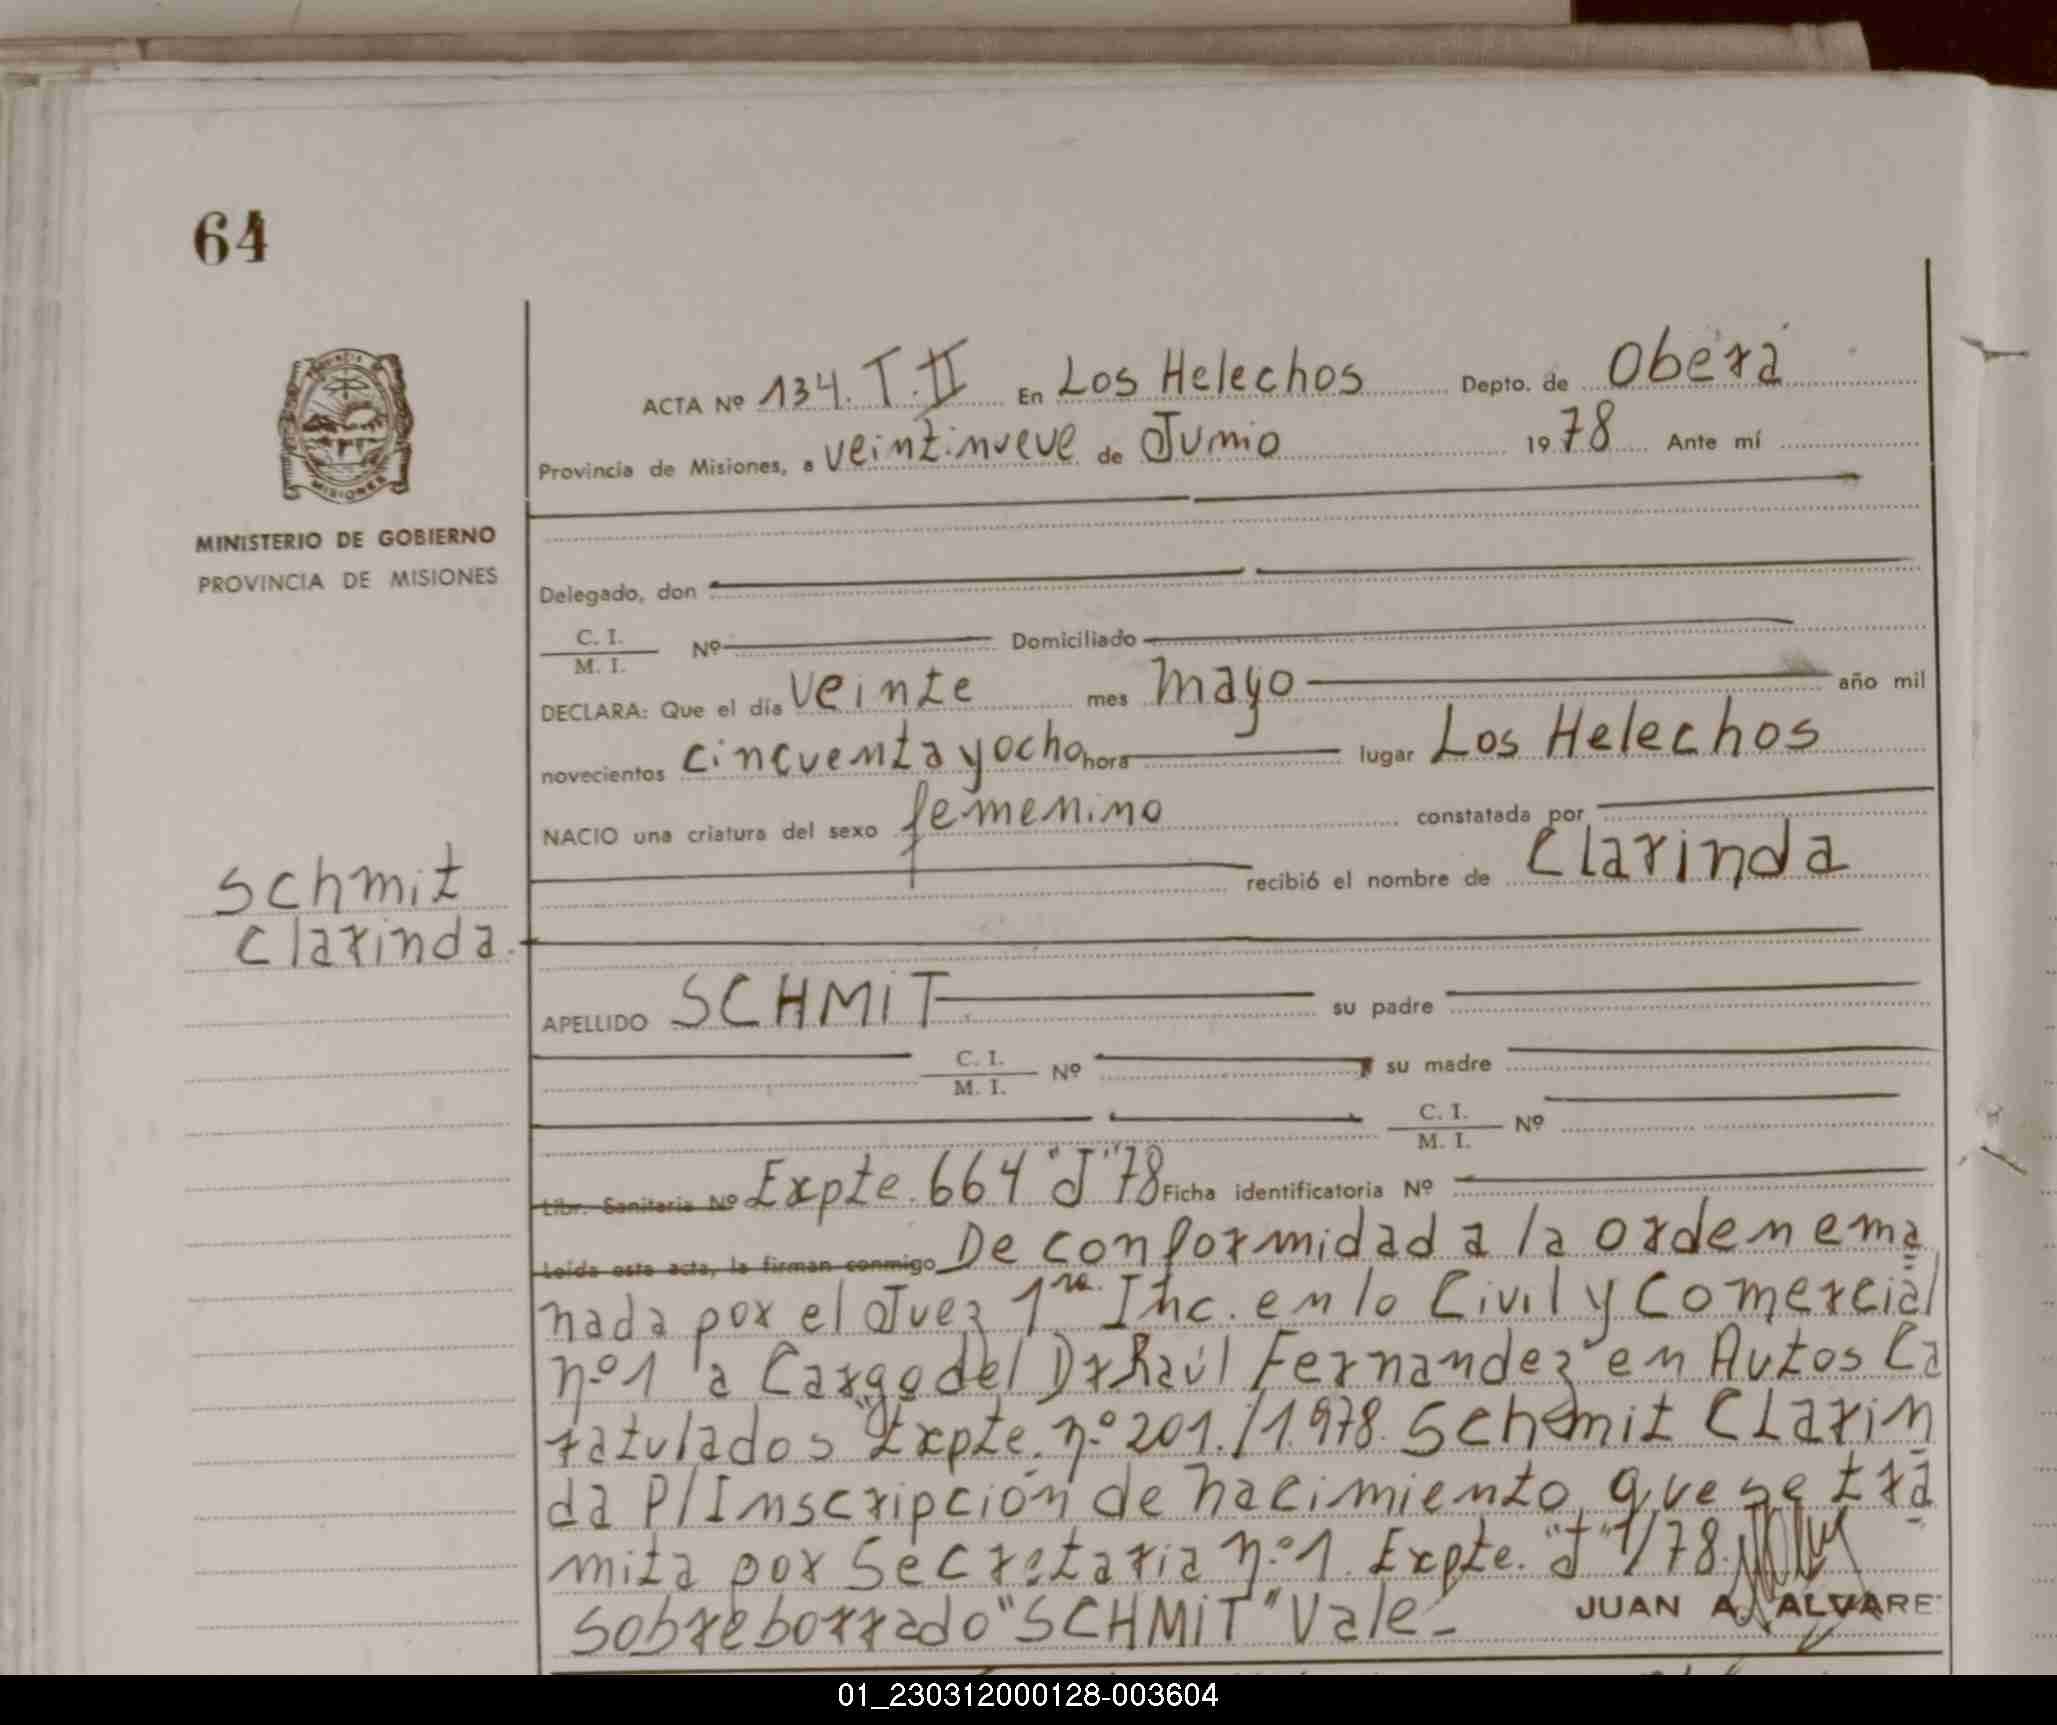 64
MISIONES
MINISTERIO DE GOBIERNO
PROVINCIA DE MISIONES
Schmit
Clarinda.
ACTA Nº 134. T. II En Los Helechos Depto. de Oberá
Provincia de Misiones, a veintinueve de Junio 1978 Ante mí
Delegado, don
C. I.
M. I. Nº Domiciliado
DECLARA: Que el día veinte mes mayo año mil
novecientos cincuenta y ocho hora lugar Los Helechos
NACIO una criatura del sexo femenino constatada por
recibió el nombre de Clarinda
APELLIDO SCHMIT su padre
C. I.
M. I. Nº su madre
C. I.
M. I. Nº
Libr. Sanitaria Nº Expte. 664 "J" 78 Ficha identificatoria Nº
Leída esta acta, la firman conmigo De conformidad a la orden ema
nada por el Juez 1ra. Inc. en lo Civil y Comercial
nº 1 a Cargo del Dr Raúl Fernandez en Autos Ca
ratulados "Expte. nº 201./1.978. Schmit Clarin
da P/Inscripción de nacimiento que se tra
mita por Secretaria nº 1. Expte. "J" 1/78.
Sobreborrado "SCHMIT" Vale-
JUAN A. ALVARE
01_230312000128-003604